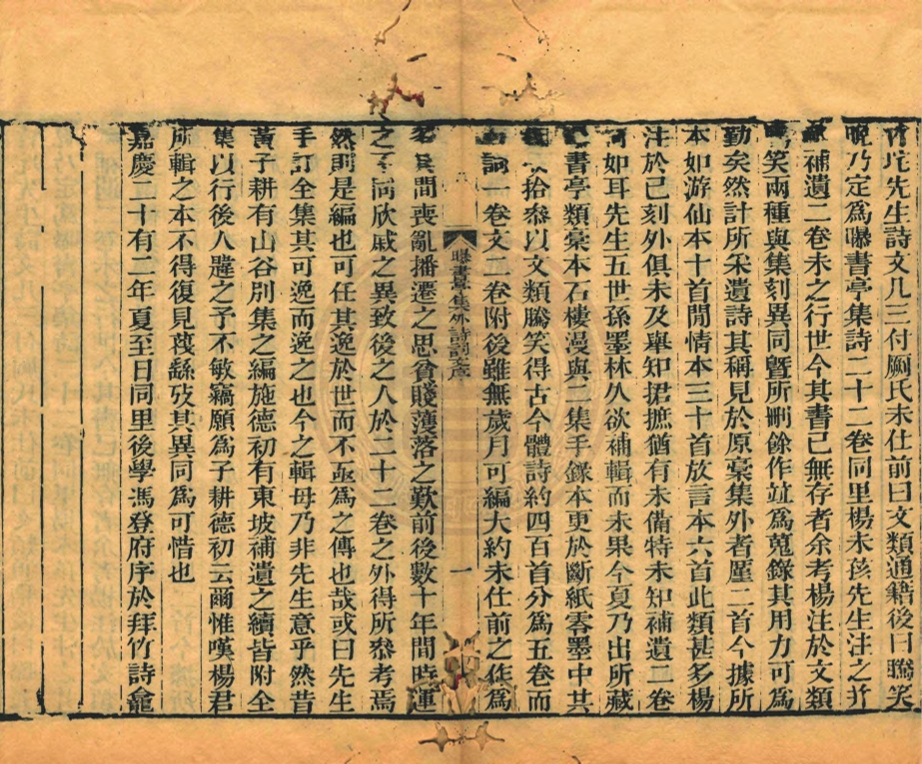 竹垞先生詩文凡三付劂氏未仕前曰文類通籍後曰騰笑
晚乃定為曝書亭集詩二十二卷同里楊未孩先生注之幷
補遺二卷未之行世今其書已無存者余考楊注於文類
笑兩種與集刻異同曁所刪餘作竝為蒐錄其用力可為
勤矣然計所采遺詩其稱見於原稾集外者厪二首今據所
本如游仙本十首閒情本三十首放言本六首此類甚多楊
注於已刻外俱未及舉知捃摭猶有未備特未知補遺二卷
何如耳先生五世孫墨林久欲補輯而未果今夏乃出所藏
書亭類稾本石樓漫與二集手鏁本更於斷紙零墨中其
拾叅以文類騰笑得古今體詩約四百首分為五卷而
詞一卷文二卷附後雖無歲月可編大約未仕前之作為
曝書亭集外詩詞序
一
多其間喪亂播遷之思貧賤薄落之歎前後數十年間時運
之不同欣戚之異致後之人於二十二卷之外得所叅考焉
然則是編也可任其逸於世而不亟為之傳也哉或曰先生
手訂全集其可逸而逸之也今之輯毋乃非先生意乎然昔
黃子耕有山谷別集之編施德初有東坡補遺之續皆附全
集以行後人韙之予不敏竊願為子耕德初云爾惟嘆楊君
所輯之本不得復見莪繇攷其異同為可惜也
嘉慶二十有二年夏至日同里後學馮登府序於拜竹詩龕